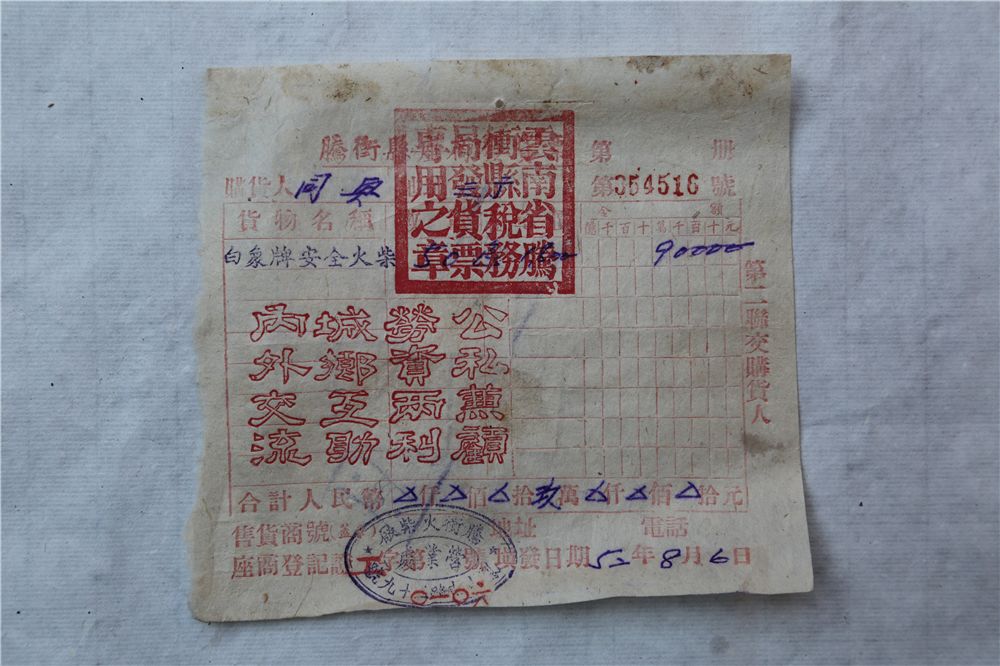 騰衝縣
第 册
購貨人 同興
第054516號
雲南省騰
衝縣稅務
局發貨票
專用之章
貨物名稱
金額
億千百十萬千百十元
白象牌安全火柴 50 1800 90000
公私兼顧
勞資兩利
城鄉互助
內外交流
第二聯交購貨人
合計人民幣 △仟△佰△拾玖萬△仟△佰△拾元
售貨商號 地址 電話
騰衝火柴廠
營業廳
座商登記證 工 字第 號 填發日期52年8月6日
〇一〇六